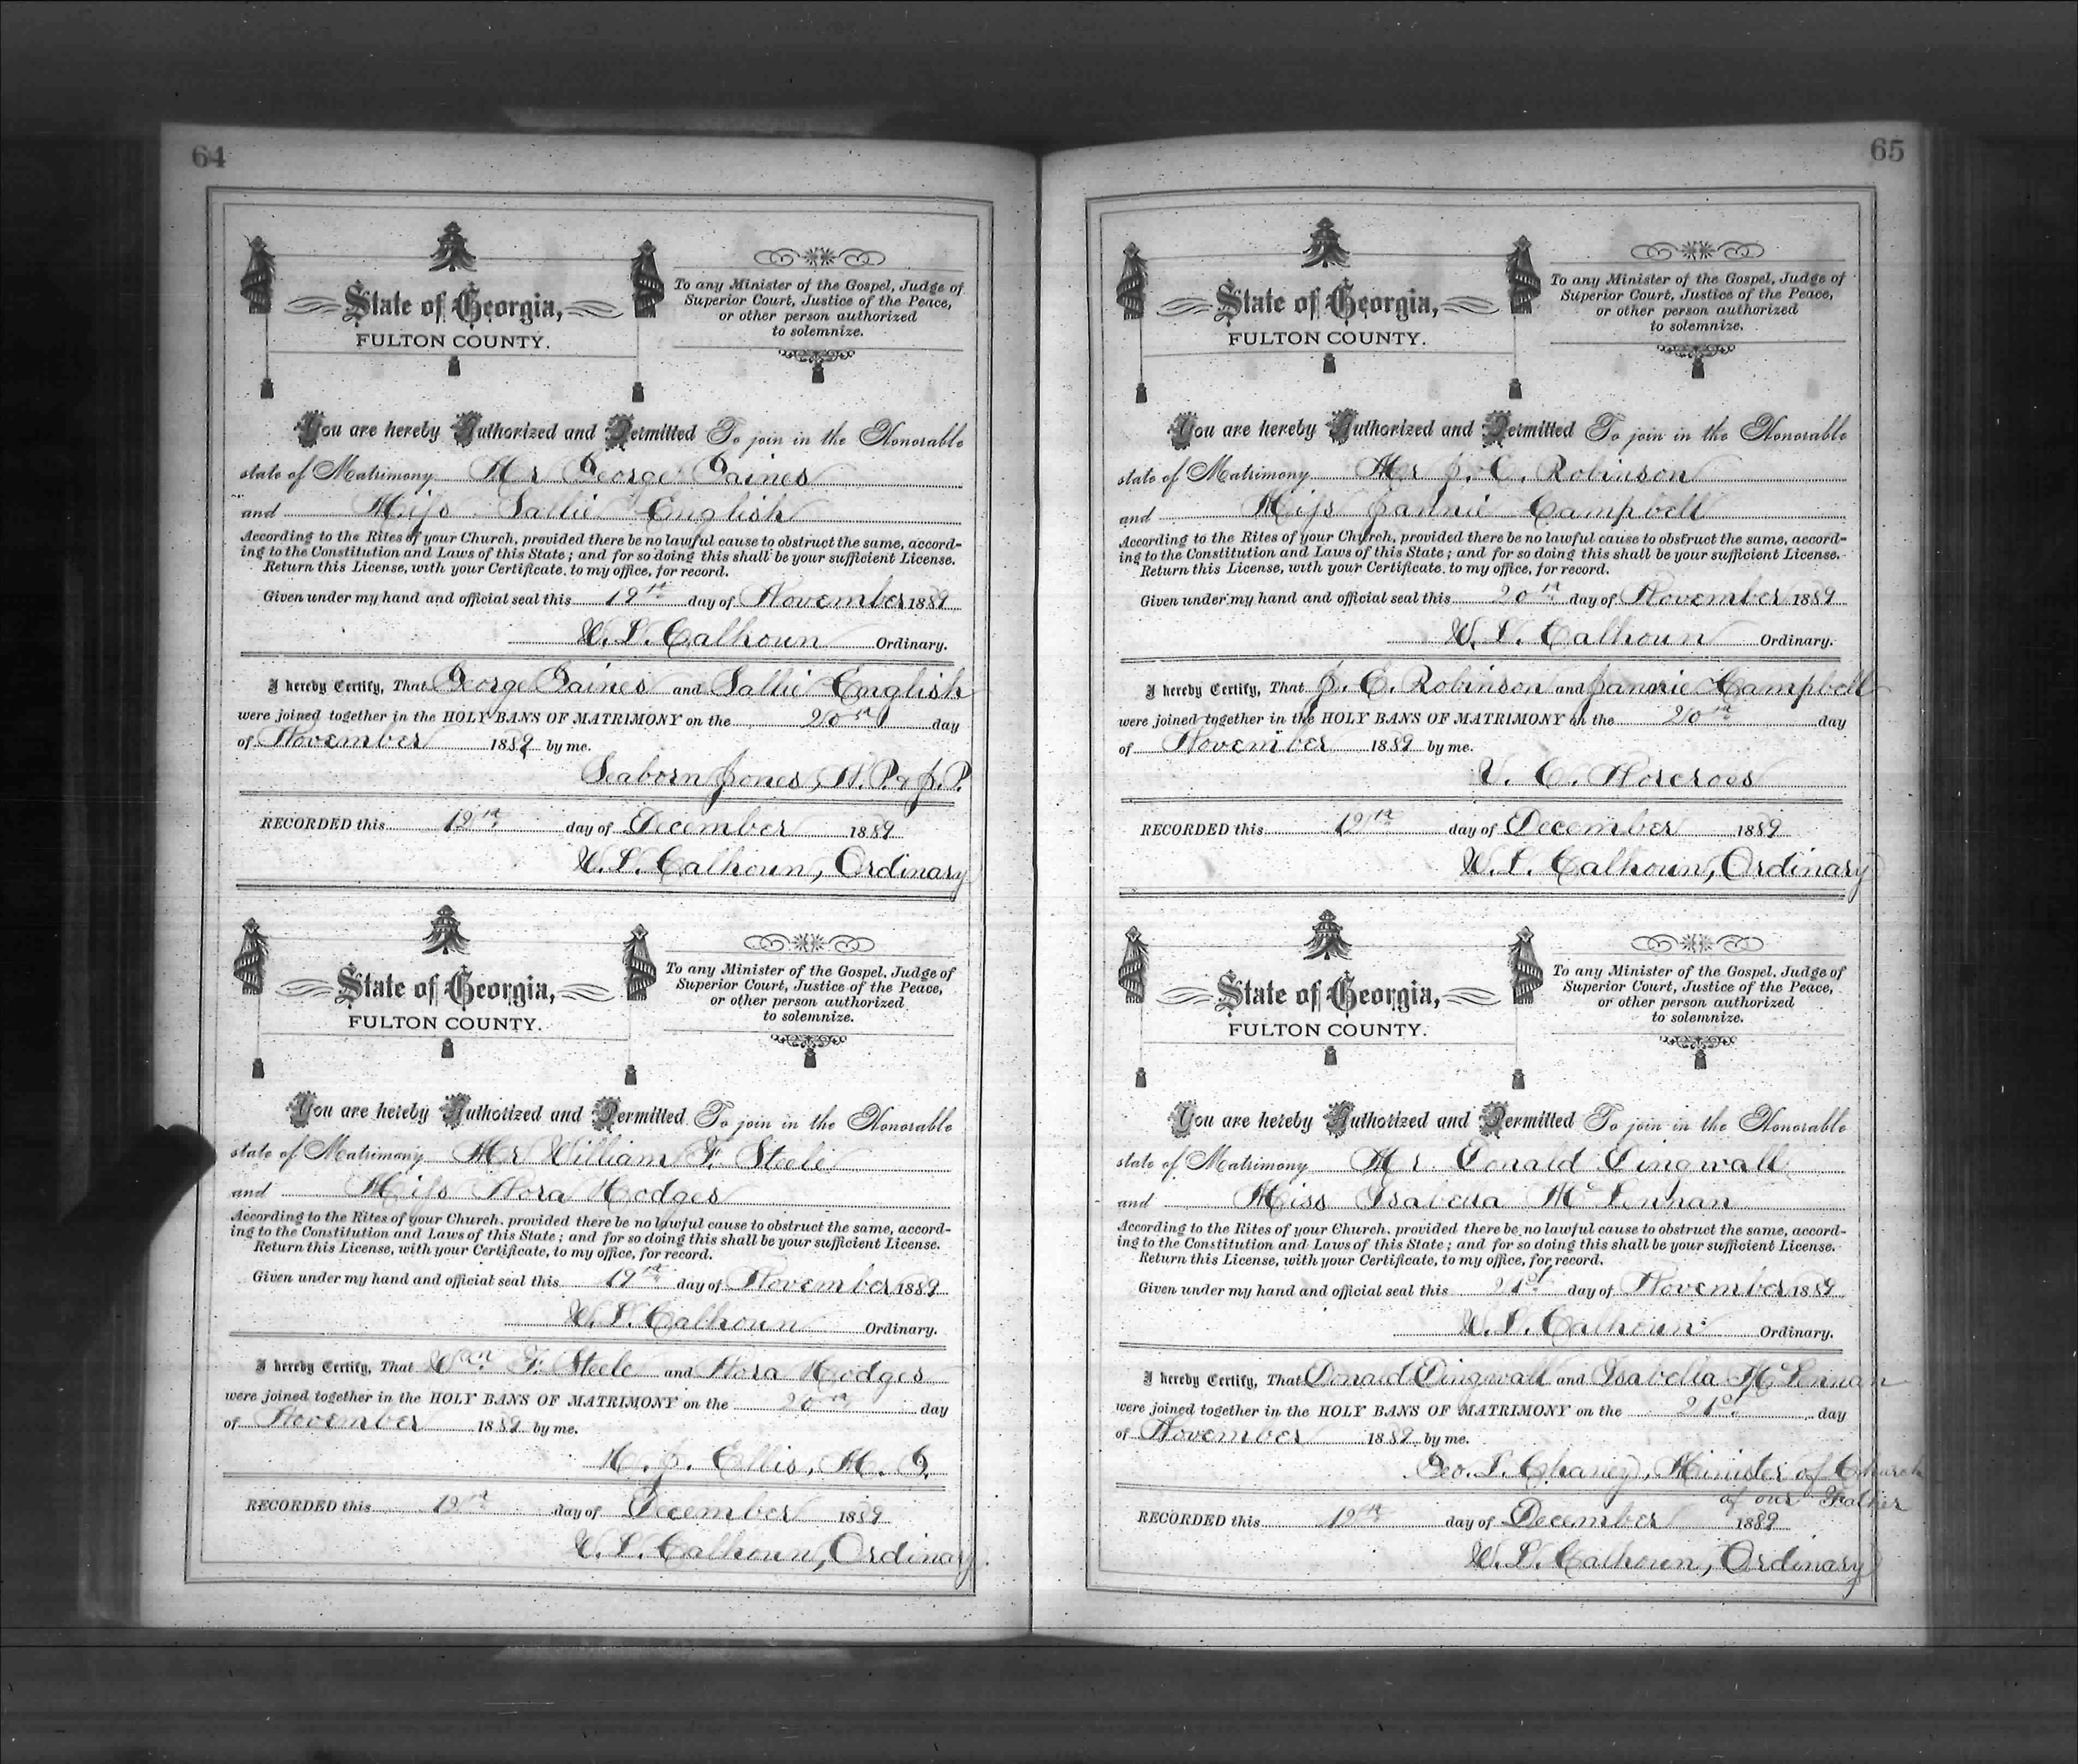 64
State of Georgia,
FULTON COUNTY.
To any Minister of the Gospel, Judge of
Superior Court, Justice of the Peace,
or other person authorized
to solemnize.
You are hereby Authorized and Permitted To join in the Honorable
state of Matrimony Mr George Gaines
and Miss Sallie English
According to the Rites of your Church, provided there be no lawful cause to obstruct the same, accord-
ing to the Constitution and Laws of this State; and for so doing this shall be your sufficient License.
Return this License, with your Certificate, to my office, for record.
Given under my hand and official seal this 19th day of November 1889
W. L. Calhoun Ordinary.
I hereby Certify, That George Gaines and Sallie English
were joined together in the HOLY BANS OF MATRIMONY on the 20th day
of November 1889 by me.
Seaborn Jones, N. P. & J. P.
RECORDED this 19th day of December 1889
W. L. Calhoun, Ordinary
State of Georgia,
FULTON COUNTY.
To any Minister of the Gospel, Judge of
Superior Court, Justice of the Peace,
or other person authorized
to solemnize.
You are hereby Authorized and Permitted To join in the Honorable
state of Matrimony Mr William F. Steele
and Miss Nora Hodges
According to the Rites of your Church, provided there be no lawful cause to obstruct the same, accord-
ing to the Constitution and Laws of this State; and for so doing this shall be your sufficient License.
Return this License, with your Certificate, to my office, for record.
Given under my hand and official seal this 19th day of November 1889
W. L. Calhoun Ordinary.
I hereby Certify, That Wm. F. Steele and Nora Hodges
were joined together in the HOLY BANS OF MATRIMONY on the 20th day
of November 1889 by me.
H. J. Ellis, M. G.
RECORDED this 19th day of December 1889
W. L. Calhoun, Ordinary
65
State of Georgia,
FULTON COUNTY.
To any Minister of the Gospel, Judge of
Superior Court, Justice of the Peace,
or other person authorized
to solemnize.
You are hereby Authorized and Permitted To join in the Honorable
state of Matrimony Mr J. C. Robinson
and Miss Jannie Campbell
According to the Rites of your Church, provided there be no lawful cause to obstruct the same, accord-
ing to the Constitution and Laws of this State; and for so doing this shall be your sufficient License.
Return this License, with your Certificate, to my office, for record.
Given under my hand and official seal this 20th day of November 1889
W. L. Calhoun Ordinary.
I hereby Certify, That J. C. Robinson and Jannie Campbell
were joined together in the HOLY BANS OF MATRIMONY on the 20th day
of November 1889 by me.
V. C. Norcross
RECORDED this 19th day of December 1889
W. L. Calhoun, Ordinary
State of Georgia,
FULTON COUNTY.
To any Minister of the Gospel, Judge of
Superior Court, Justice of the Peace,
or other person authorized
to solemnize.
You are hereby Authorized and Permitted To join in the Honorable
state of Matrimony Mr. Donald Dingwall
and Miss Isabella McLennan
According to the Rites of your Church, provided there be no lawful cause to obstruct the same, accord-
ing to the Constitution and Laws of this State; and for so doing this shall be your sufficient License.
Return this License, with your Certificate, to my office, for record.
Given under my hand and official seal this 21st day of November 1889
W. L. Calhoun Ordinary.
I hereby Certify, That Donald Dingwall and Isabella McLennan
were joined together in the HOLY BANS OF MATRIMONY on the 21st day
of November 1889 by me.
Geo. L. Chaney, Minister of Church
of our Father
RECORDED this 19th day of December 1889
W. L. Calhoun, Ordinary